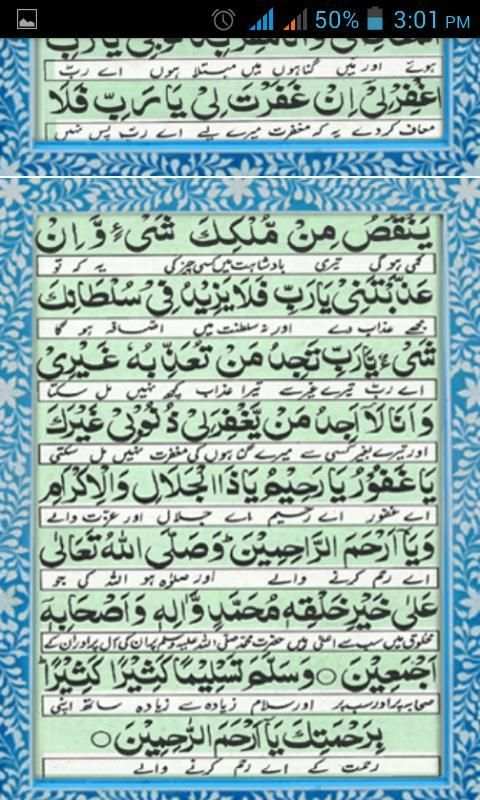 50% 3:01 PM
ہوئے اور میں گناہوں میں مبتلا ہوں اے ربّ
اغْفِرْلِیْ اِنْ غَفَرْتَ لِیْ یَا رَبِّ فَلَا
معاف کردے یہ کہ مغفرت میرے لیے اے ربّ پس نہیں
یَنْقُصُ مِنْ مُلْکِکَ شَیْءٌ وَّاِنْ
کمی ہوگی تیری بادشاہت میں کسی چیز کی یہ کہ تو
عَذَّبْتَنِیْ یَارَبِّ فَلَا یَزِیْدُ فِیْ سُلْطَانِکَ
مجھے عذاب دے اور نہ سلطنت میں اضافہ ہو گا
شَیْءٌ یَارَبِّ تَجِدُ مَنْ تُعَذِّبُہٗ غَیْرِیْ
اے ربّ تیرے غیر سے تیرا عذاب کچھ نہیں مل سکتا
وَاَنَا لَا اَجِدُ مَنْ یَّغْفِرُلِیْ ذُنُوْبِیْ غَیْرَکَ
اور تیرے بغیر کسی سے میرے گناہوں کی مغفرت نہیں مل سکتی
یَا غَفُوْرُ یَا رَحِیْمُ یَاذَا الْجَلَالِ وَالْاِکْرَامِ
اے غفور اے رحیم اے جلال اور عزت والے
وَیَآ اَرْحَمَ الرَّاحِمِیْنَ وَصَلَّی اللہُ تَعَالٰی
اے رحم کرنے والے اور صلوٰۃ ہو اللہ کی جو
عَلٰی خَیْرِ خَلْقِہٖ مُحَمَّدٍ وَّاٰلِہٖ وَاَصْحَابِہٖ
مخلوق میں سب سے اعلیٰ ہیں حضرت محمد صلی اللہ علیہ وسلم پر ان کی آل پر اور ان کے
اَجْمَعِیْنَ ○ وَسَلَّمَ تَسْلِیْمًا کَثِیْرًا کَثِیْرًا
صحابہ پر اور سب پر اور سلام زیادہ سے زیادہ ساتھ اپنی
بِرَحْمَتِکَ یَآ اَرْحَمَ الرّٰحِمِیْنَ ○
رحمت کے اے رحم کرنے والے